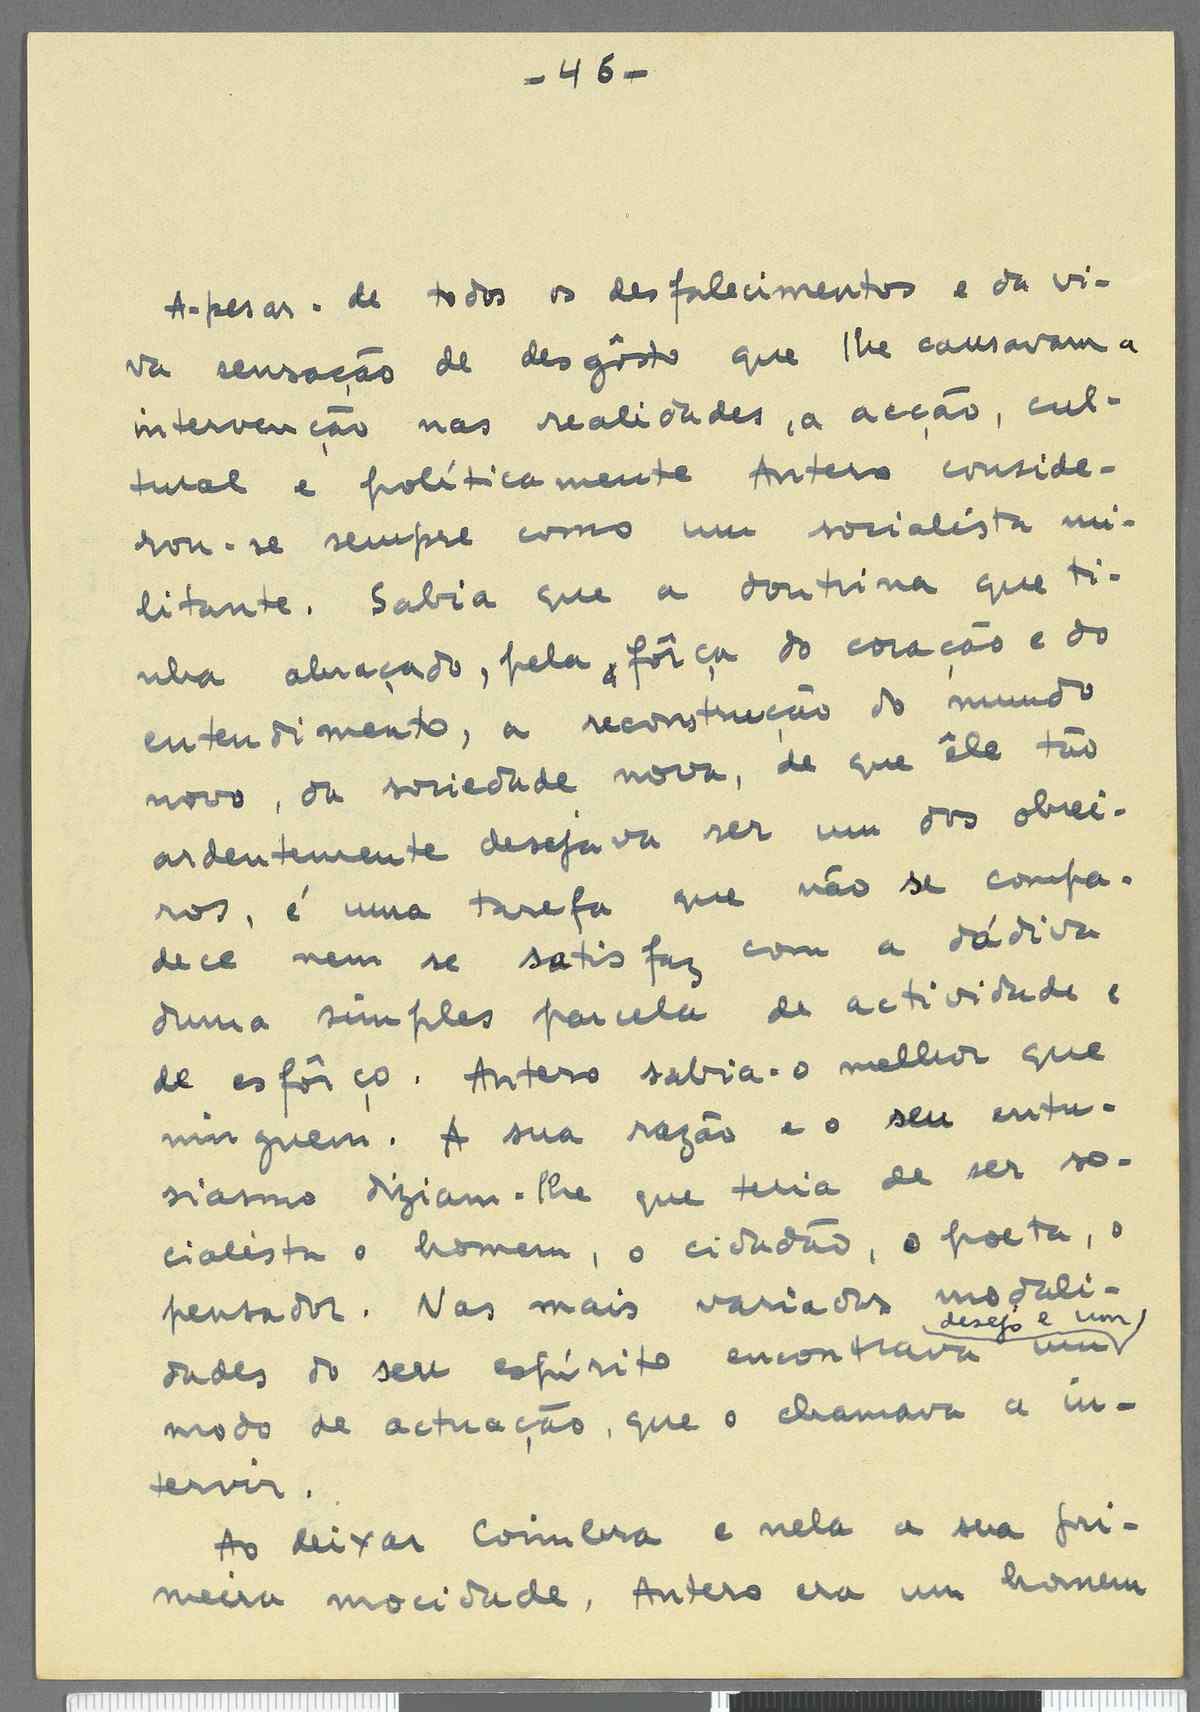 -46-
A-pesar-de todos os desfalecimentos e da vi-
va sensação de desgôsto que lhe causavam a
intervenção nas realidades, a acção, cul-
tural e políticamente Antero conside-
rou-se sempre como um socialista mi-
litante. Sabia que a doutrina que ti-
nha abraçado, pela fôrça do coração e do
entendimento, a reconstrução do mundo
novo, da sociedade nova, de que êle tão
ardentemente desejava ser um dos obrei-
ros, é uma tarefa que não se compa-
dece nem se satisfaz com a dádiva
duma simples parcela de actividade e
de esfôrço. Antero sabia-o melhor que
ninguem. A sua razão e o seu entu-
siasmo diziam-lhe que teria de ser so-
cialista o homem, o cidadão, o poeta, o
pensador. Nas mais variadas modali-
desejo e um
dades do seu espírito encontrava um
modo de actuação, que o chamava a in-
tervir.
Ao deixar Coimbra e nela a sua pri-
meira mocidade, Antero era um homem